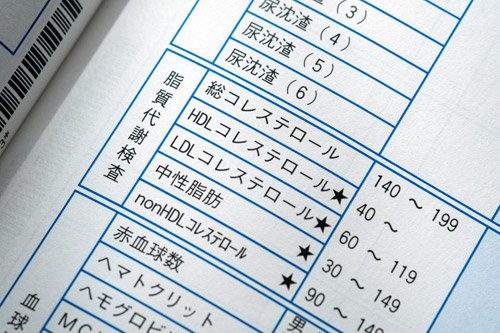 尿沈渣 (3)
尿沈渣 (4)
尿沈渣 (5)
尿沈渣 (6)
脂質代謝検査
総コレステロール 140 ～ 199
HDLコレステロール★ 40 ～
LDLコレステロール★ 60 ～ 119
中性脂肪 ★ 30 ～ 149
nonHDLコレステロール ★ 90 ～ 149
血球
赤血球数 男
ヘマトクリット
ヘモグロビ
MC